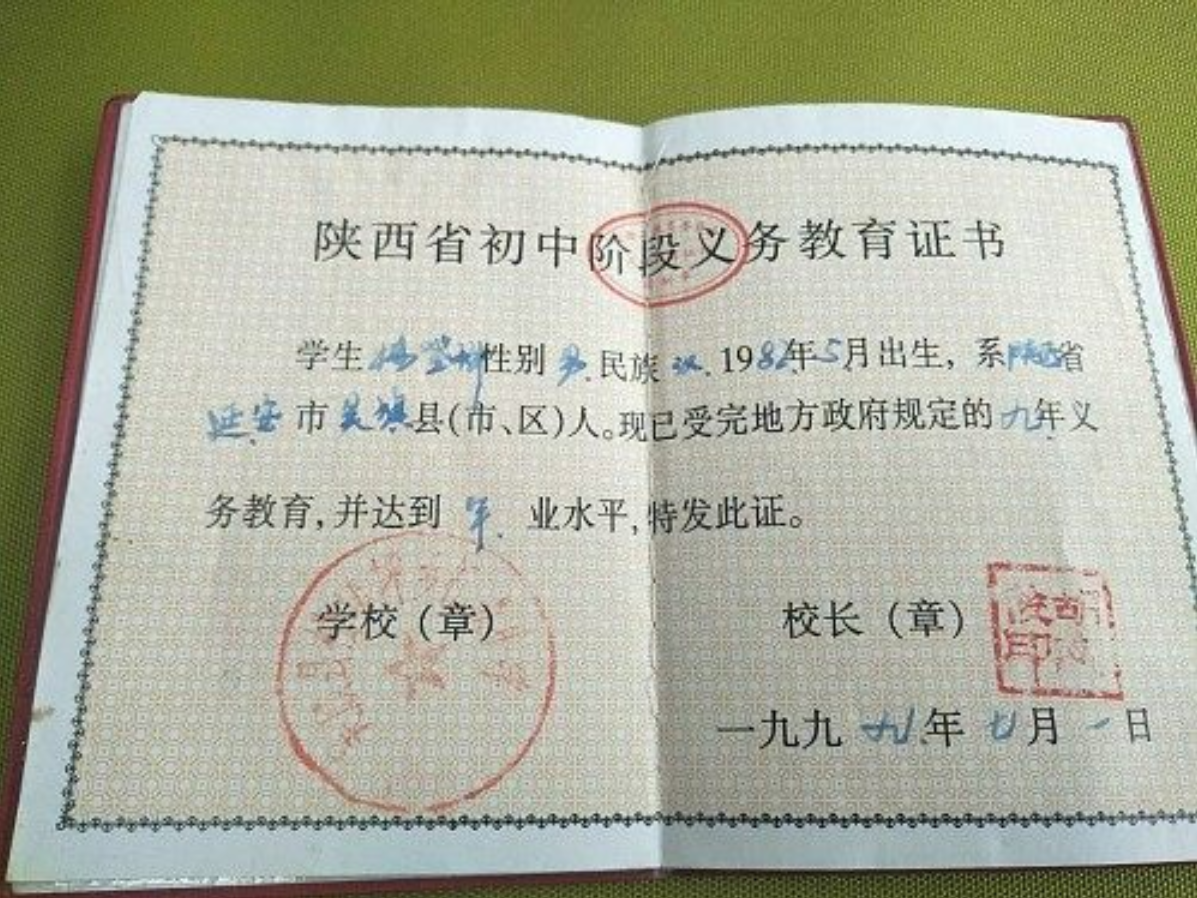 陕西省初中阶段义务教育证书
学生 性别 男 民族 汉 1982年5月出生，系陕西省
延安市吴旗县(市、区)人。现已受完地方政府规定的九年义
务教育，并达到 毕 业水平，特发此证。
学校（章）
校长（章）
一九九九年七月一日